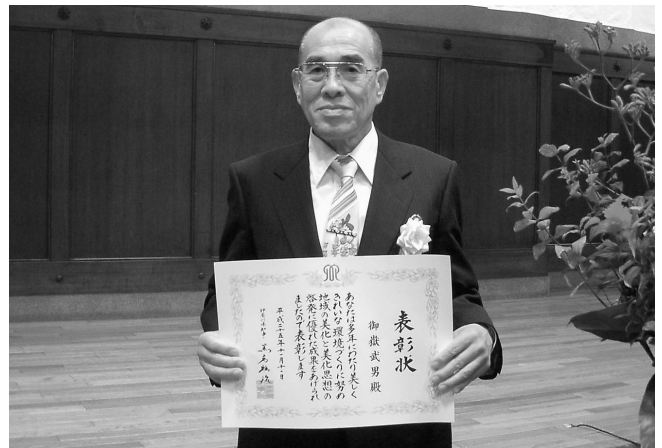 表彰状
御嶽武男殿
あなたは多年にわたり美しく
きれいな環境づくりに努め
地域の美化と美化思想の
啓発に優れた成果をあげられ
ましたので表彰します
平成二十五年十一月十一日